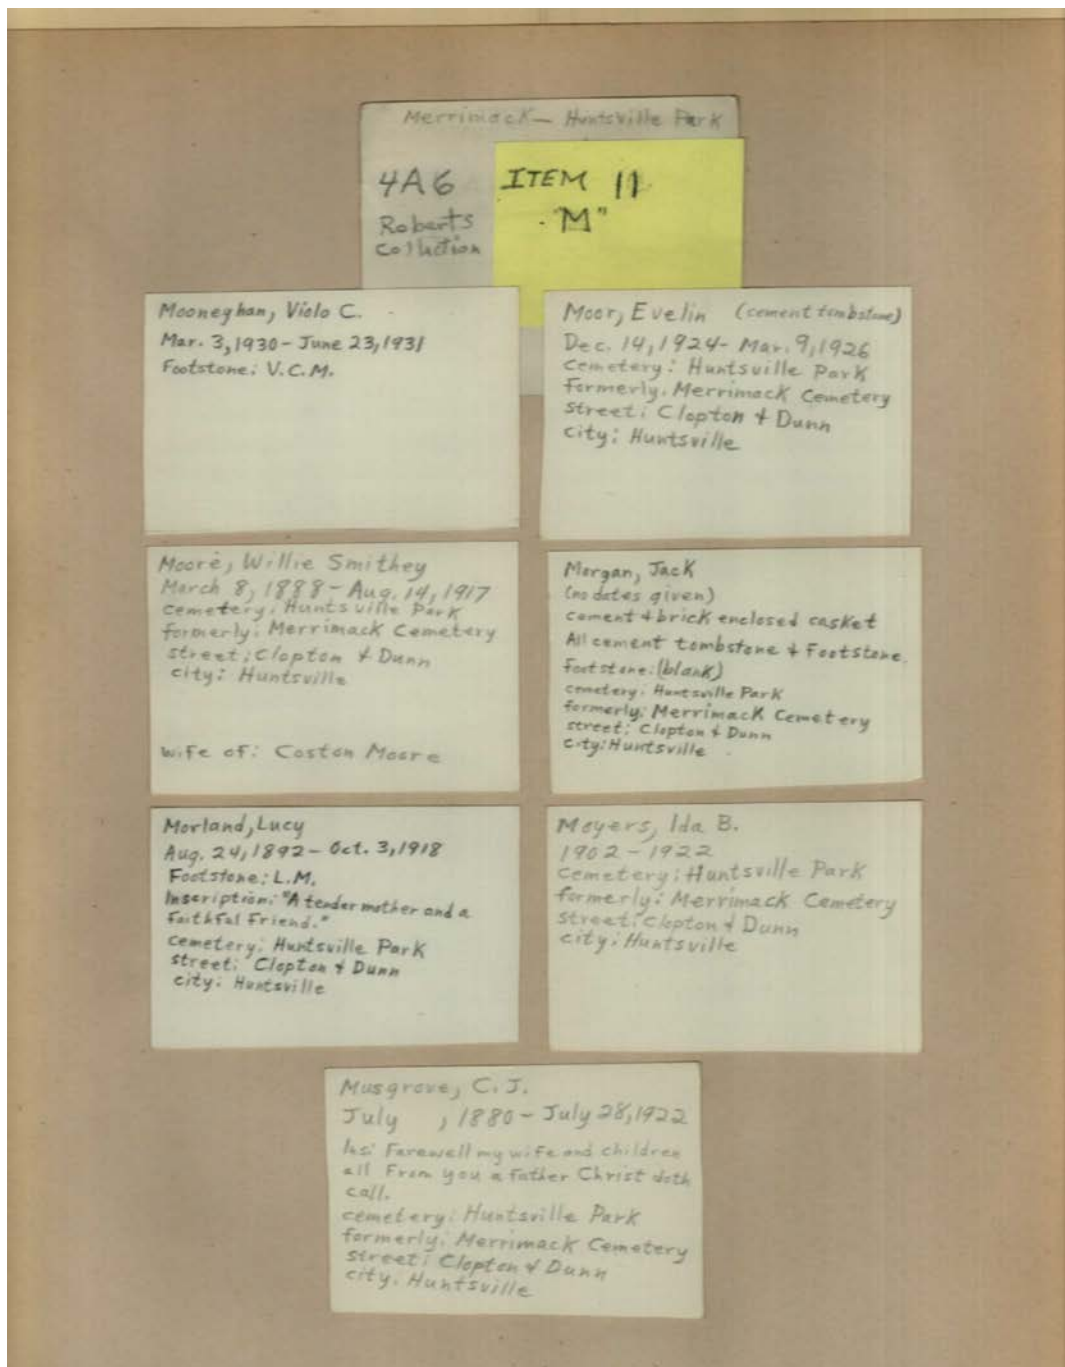 Merrimack - Huntsville Park
4A6
Roberts
Collection
ITEM 11
"M"
Mooneghan, Violo C.
Mar. 3, 1930 - June 23, 1931
Footstone: V.C.M.
Moor, Evelin (cement tombstone)
Dec. 14, 1924 - Mar. 9, 1926
cemetery: Huntsville Park
formerly: Merrimack Cemetery
street: Clopton & Dunn
city: Huntsville
Moore, Willie Smithey
March 8, 1888 - Aug. 14, 1917
cemetery: Huntsville Park
formerly: Merrimack Cemetery
street: Clopton & Dunn
city: Huntsville
wife of: Coston Moore
Morgan, Jack
(no dates given)
cement & brick enclosed casket
All cement tombstone & Footstone.
footstone: (blank)
cemetery: Huntsville Park
formerly: Merrimack Cemetery
street: Clopton & Dunn
city: Huntsville
Morland, Lucy
Aug. 24, 1892 - Oct. 3, 1918
Footstone: L.M.
Inscription: "A tender mother and a
faithful friend."
cemetery: Huntsville Park
street: Clopton & Dunn
city: Huntsville
Moyers, Ida B.
1902 - 1922
cemetery: Huntsville Park
formerly: Merrimack Cemetery
street: Clopton & Dunn
city: Huntsville
Musgrove, C. J.
July , 1880 - July 28, 1922
Ins: Farewell my wife and children
all From you a father Christ doth
call.
cemetery: Huntsville Park
formerly: Merrimack Cemetery
street: Clopton & Dunn
city: Huntsville